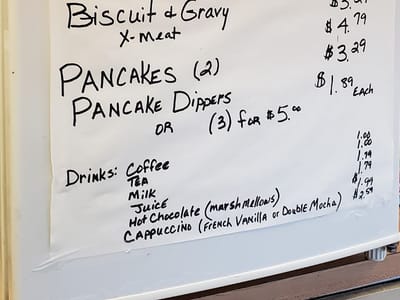 Biscuit & Gravy
X-meat $4.79
Pancakes (2) $3.29
Pancake Dippers $1.89 Each
or (3) for $5.00
Drinks: Coffee 1.00
Tea 1.00
Milk
Juice 1.79
Hot Chocolate (marshmellows) $1.99
Cappuccino (French Vanilla or Double Mocha) $2.59